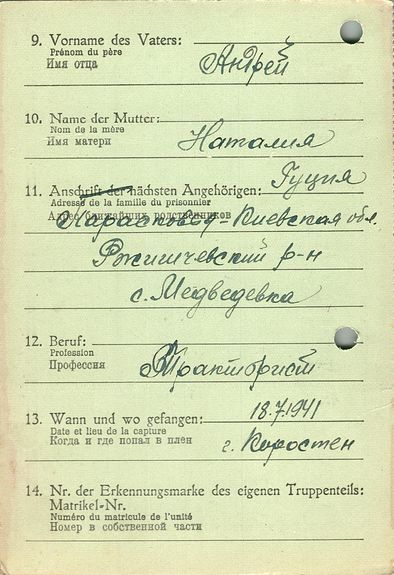 9. Vorname des Vaters:
Prénom du père
Имя отца
Андрей
10. Name der Mutter:
Nom de la mère
Имя матери
Наталия
11. Anschrift der nächsten Angehörigen:
Гуция
Adresse de la famille du prisonnier
Адрес ближайших родственников
Киевская обл.
Ржищевский р-н
с. Медведевка
12. Beruf:
Profession
Профессия
Тракторист
13. Wann und wo gefangen:
18.7.1941
Date et lieu de la capture
Когда и где попал в плен
г. Коростен
14. Nr. der Erkennungsmarke des eigenen Truppenteils:
Matrikel-Nr.
Numéro du matricule de l'unité
Номер в собственной части